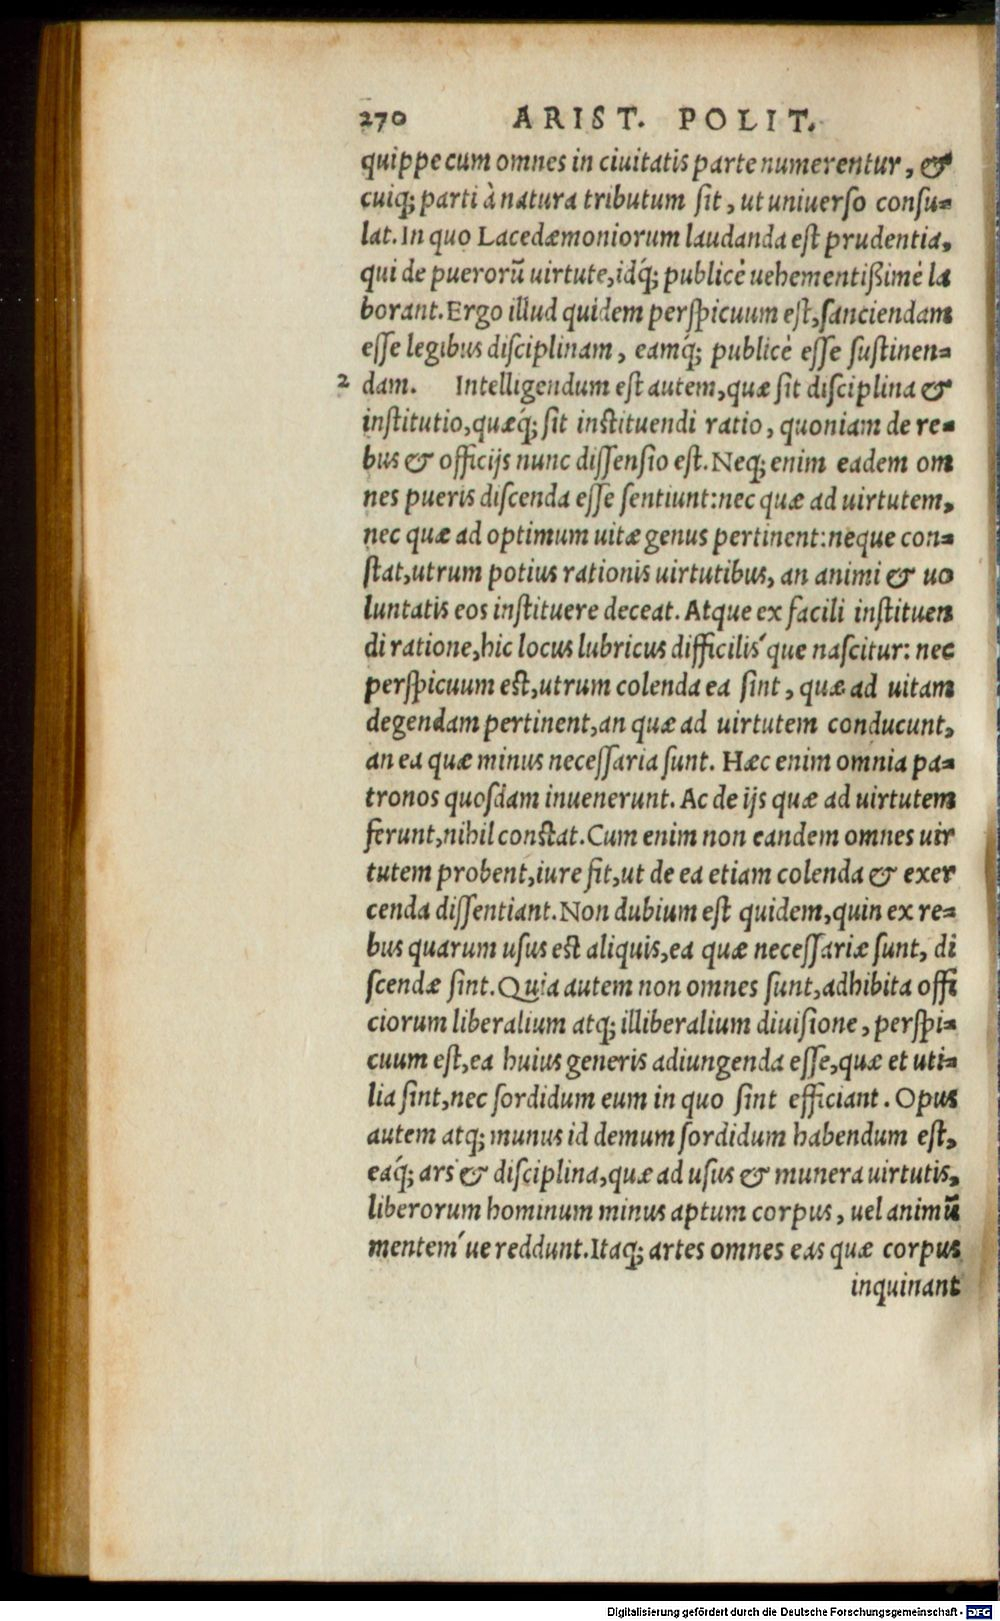 270 ARIST. POLIT.
quippe cum omnes in ciuitatis parte numerentur, &
cuiq; parti à natura tributum sit, ut uniuerso consu-
lat. In quo Lacedæmoniorum laudanda est prudentia,
qui de puerorũ uirtute, idq́; publicè uehementißimè la
borant. Ergo illud quidem perspicuum est, sanciendam
esse legibus disciplinam, eamq́; publicè esse sustinen-
2 dam. Intelligendum est autem, quæ sit disciplina &
institutio, quæq́; sit instituendi ratio, quoniam de re-
bus & officijs nunc dissensio est. Neq; enim eadem om
nes pueris discenda esse sentiunt: nec quæ ad uirtutem,
nec quæ ad optimum uitæ genus pertinent: neque con-
stat, utrum potius rationis uirtutibus, an animi & uo
luntatis eos instituere deceat. Atque ex facili instituen
di ratione, hic locus lubricus difficilis´que nascitur: nec
perspicuum est, utrum colenda ea sint, quæ ad uitam
degendam pertinent, an quæ ad uirtutem conducunt,
an ea quæ minus necessaria sunt. Hæc enim omnia pa-
tronos quosdam inuenerunt. Ac de ijs quæ ad uirtutem
ferunt, nihil constat. Cum enim non eandem omnes uir
tutem probent, iure fit, ut de ea etiam colenda & exer
cenda dissentiant. Non dubium est quidem, quin ex re-
bus quarum usus est aliquis, ea quæ necessariæ sunt, di
scendæ sint. Quia autem non omnes sunt, adhibita offi
ciorum liberalium atq; illiberalium diuisione, perspi-
cuum est, ea huius generis adiungenda esse, quæ et uti-
lia sint, nec sordidum eum in quo sint efficiant. Opus
autem atq; munus id demum sordidum habendum est,
eaq́; ars & disciplina, quæ ad usus & munera uirtutis,
liberorum hominum minus aptum corpus, uel animũ
mentem´ue reddunt. Itaq; artes omnes eas quæ corpus
inquinant
Digitalisierung gefördert durch die Deutsche Forschungsgemeinschaft - DFG